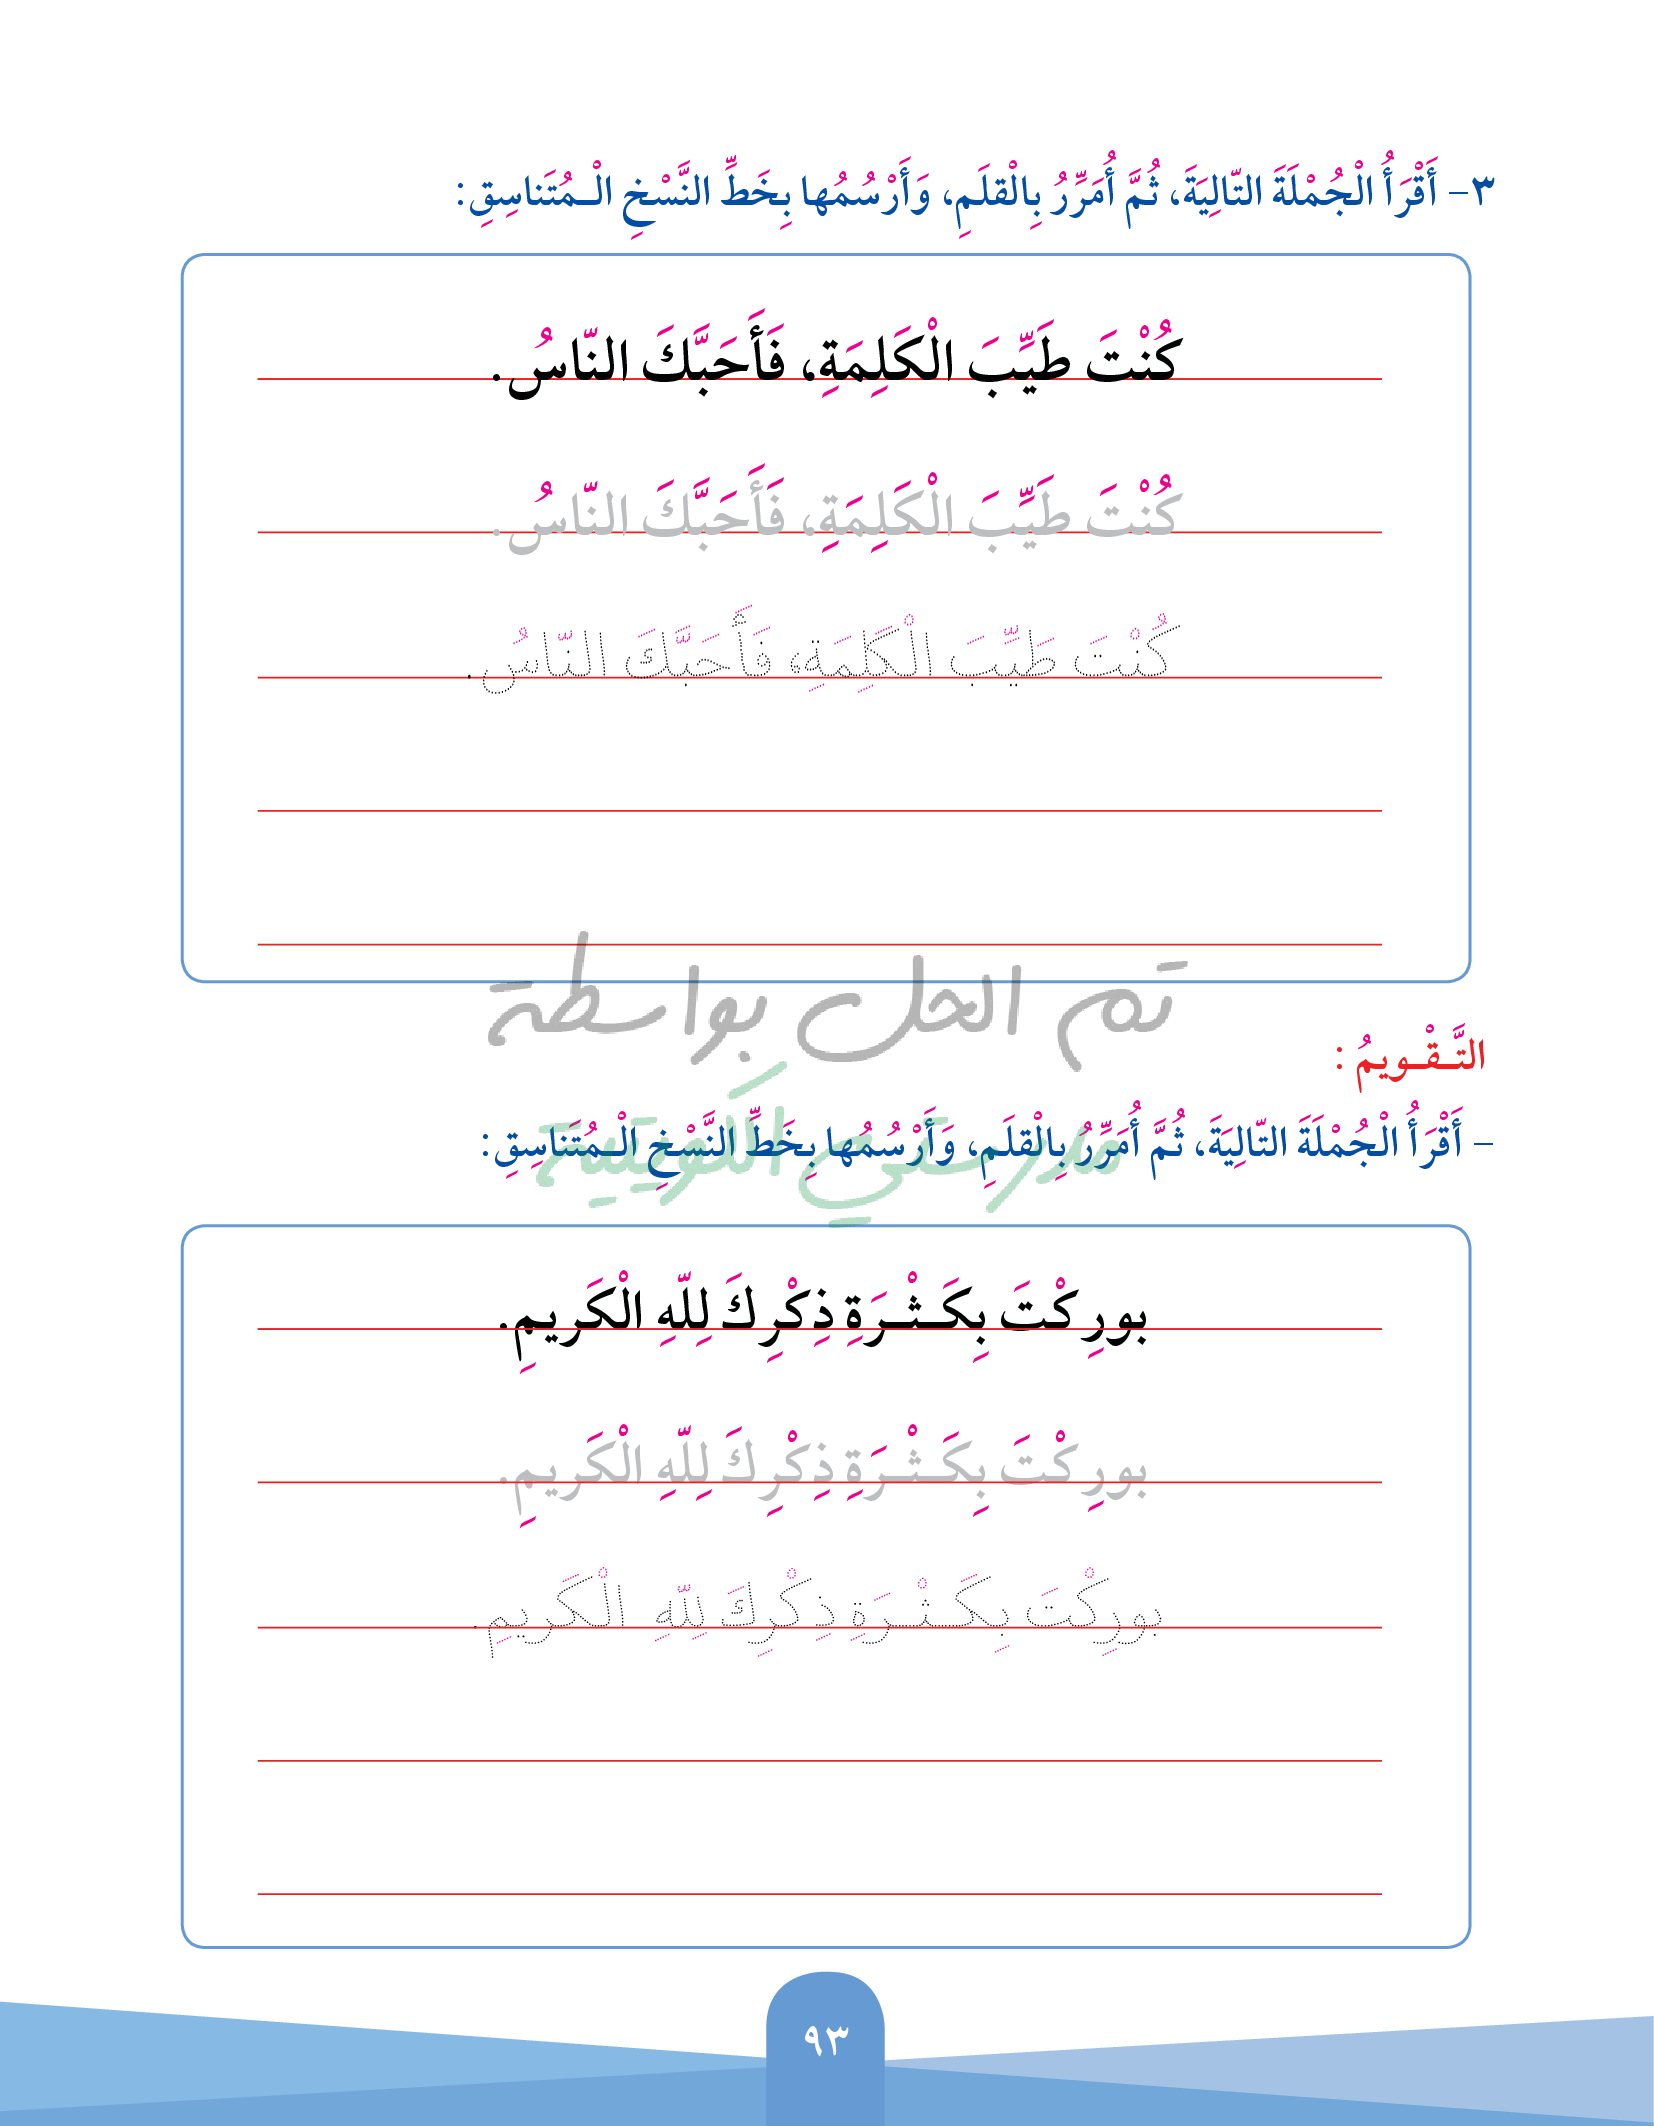 ٣- أَقْرَأُ الْجُمْلَةَ التّالِيَةَ، ثُمَّ أُمَرِّرُ بِالْقلَمِ، وَأَرْسُمُها بِخَطِّ النَّسْخِ الْـمُتَناسِقِ:
كُنْتَ طَيِّبَ الْكَلِمَةِ، فَأَحَبَّكَ النّاسُ.
كُنْتَ طَيِّبَ الْكَلِمَةِ، فَأَحَبَّكَ النّاسُ.
كُنْتَ طَيِّبَ الْكَلِمَةِ، فَأَحَبَّكَ النّاسُ.
تم الحل بواسطة
التَّـقْـويمُ :
مدرستي الكويتية
- أَقْرَأُ الْجُمْلَةَ التّالِيَةَ، ثُمَّ أُمَرِّرُ بِالْقلَمِ، وَأَرْسُمُها بِخَطِّ النَّسْخِ الْـمُتَناسِقِ:
بورِكْتَ بِكَـثْـرَةِ ذِكْرِكَ لِلّهِ الْكَريمِ.
بورِكْتَ بِكَـثْـرَةِ ذِكْرِكَ لِلّهِ الْكَريمِ.
بورِكْتَ بِكَـثْـرَةِ ذِكْرِكَ لِلّهِ الْكَريمِ.
٩٣